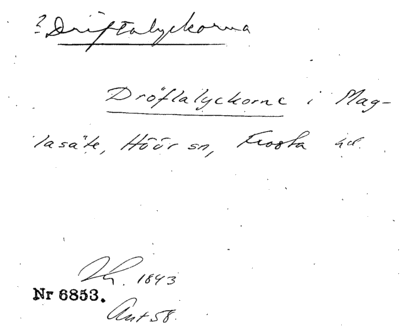 ? Driftalyckorna
Dröftalyckorne i Mag-
lasäte, Höör sn, Frosta hd.
1843
Nr 6853.
Ant 58.